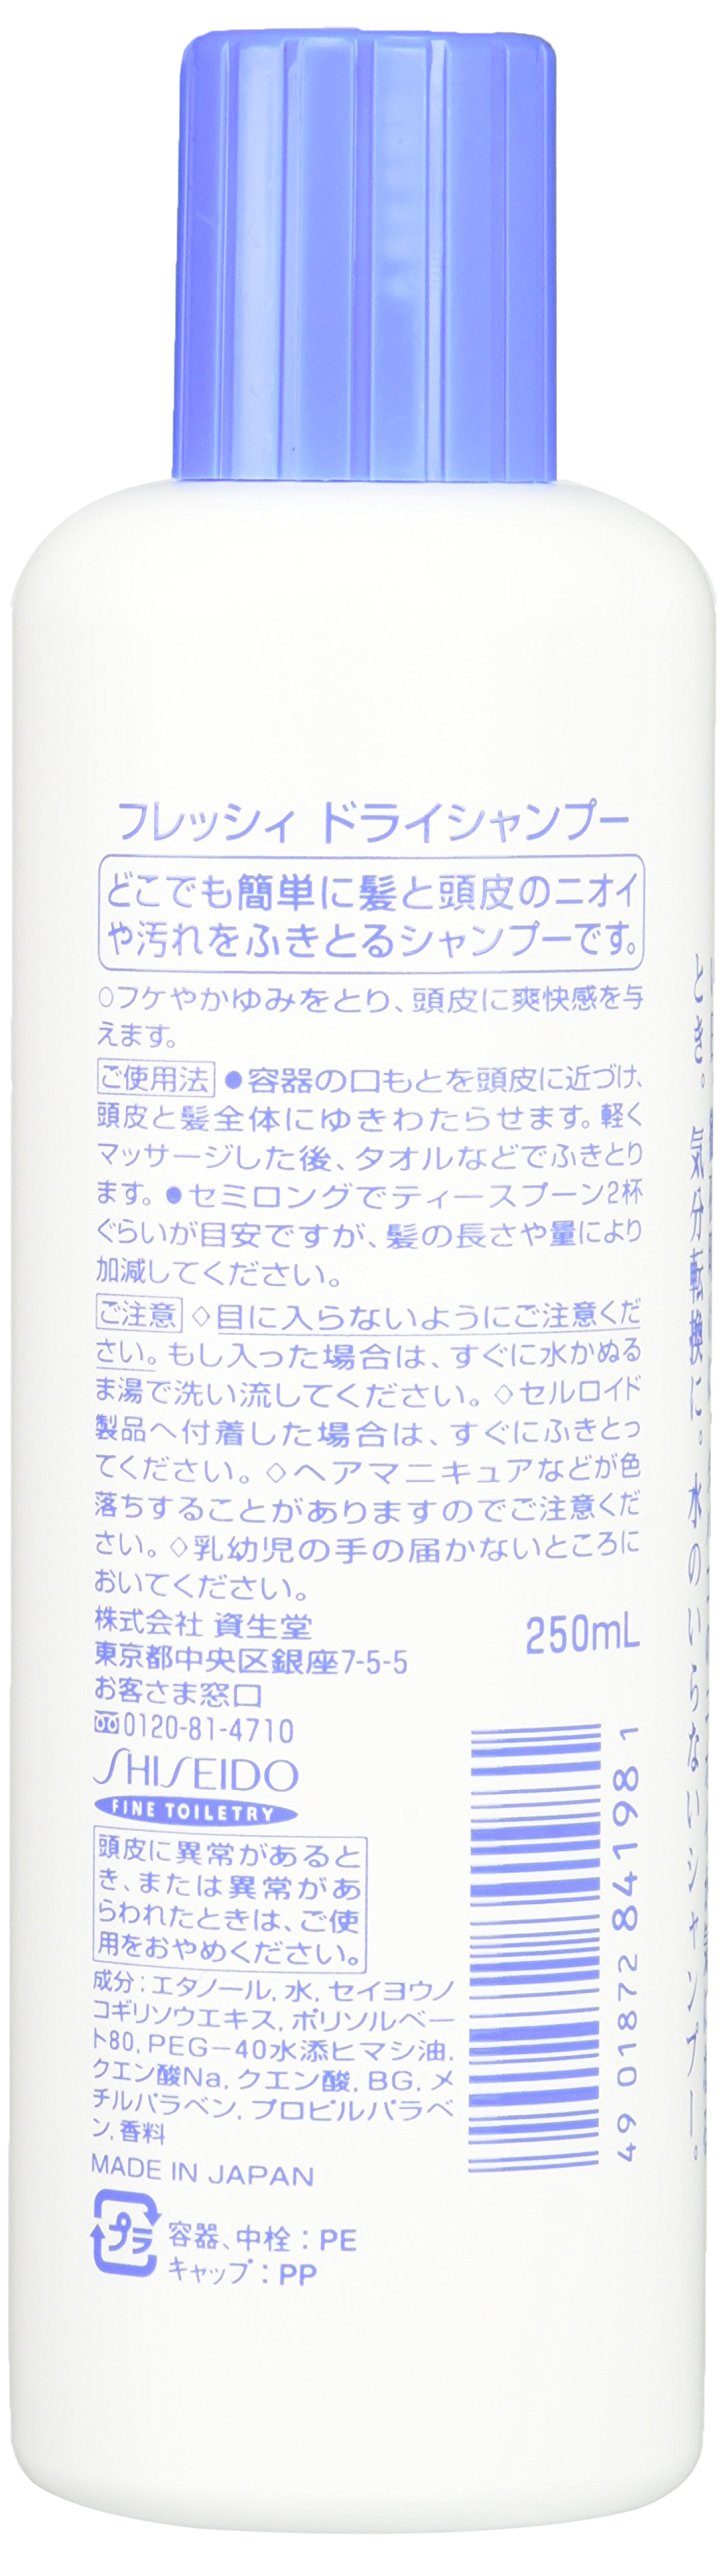 フレッシィ ドライシャンプー
どこでも簡単に髪と頭皮のニオイ
や汚れをふきとるシャンプーです。
○フケやかゆみをとり、頭皮に爽快感を与
えます。
ご使用法 ●容器の口もとを頭皮に近づけ、
頭皮と髪全体にゆきわたらせます。軽く
マッサージした後、タオルなどでふきとり
ます。●セミロングでティースプーン2杯
ぐらいが目安ですが、髪の長さや量により
加減してください。
ご注意 ◇目に入らないようにご注意くだ
さい。もし入った場合は、すぐに水かぬる
ま湯で洗い流してください。◇セルロイド
製品へ付着した場合は、すぐにふきとっ
てください。◇ヘアマニキュアなどが色
落ちすることがありますのでご注意くだ
さい。◇乳幼児の手の届かないところに
おいてください。
株式会社 資生堂
東京都中央区銀座7-5-5
お客さま窓口
0120-81-4710
250mL
SHISEIDO
FINE TOILETRY
頭皮に異常があると
き、または異常があ
らわれたときは、ご使
用をおやめください。
成分：エタノール, 水, セイヨウノ
コギリソウエキス, ポリソルベー
ト80, PEG－40水添ヒマシ油,
クエン酸Na, クエン酸, BG, メ
チルパラベン, プロピルパラベ
ン, 香料
MADE IN JAPAN
プラ 容器、中栓：PE
キャップ：PP
4901872841981
とき。気分転換に。水のいらないシャンプー。